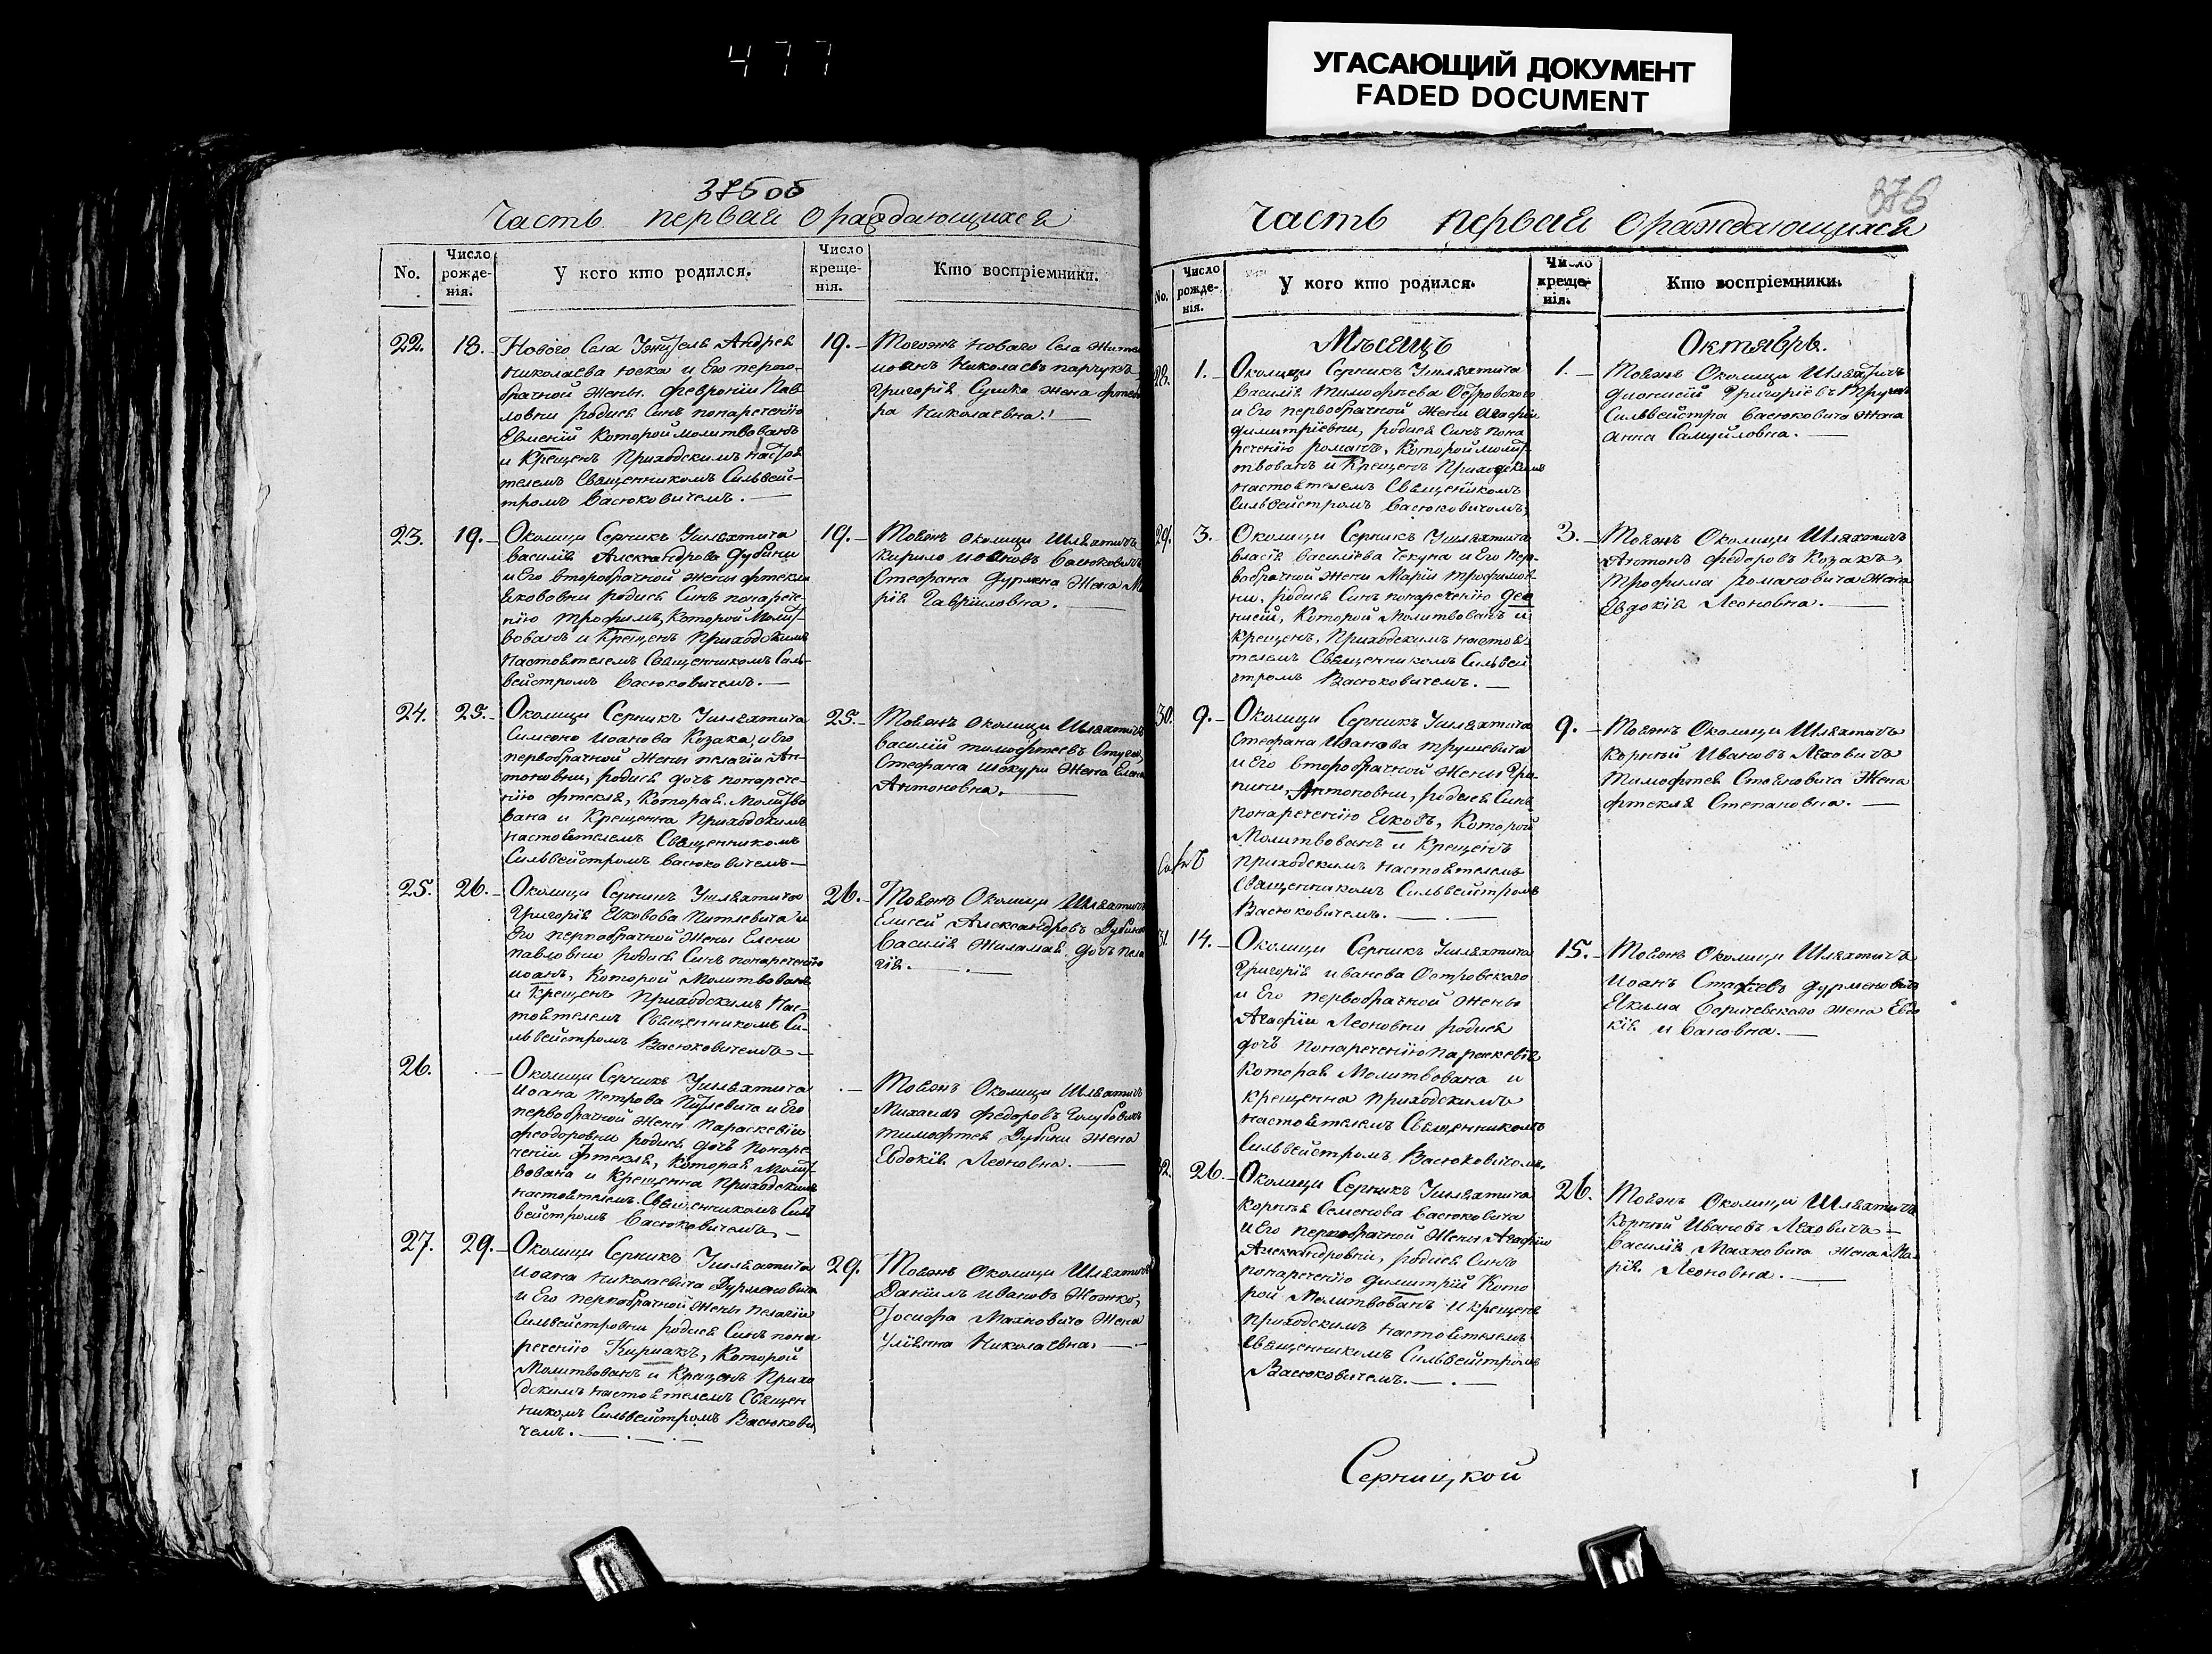 477
УГАСАЮЩИЙ ДОКУМЕНТ
FADED DOCUMENT
375 об
Часть первая о раждающихся
No.
Число рожде-нія.
У кого кто родился.
Число креще-нія.
Кто воспріемники.
22.
18.
Нового Села Андрея
Николаева и Его перво-
брачной Жены Февроніи Пав
ловны родися Сынъ понареченію
Евменій Которой Молитвованъ
и Крещенъ Приходскимъ Настоя
телемъ Священникомъ Сильвей-
тромъ Васюковичемъ.
19.
Тогожъ Новаго Села
Иоанъ Николаевъ
Григорія Жена
ра Николаевна.
23.
19.
Околици Серникъ Ушляхтича
Василія Александрова Дубины
и Его второбрачной Жены Фтекли
Яковвны родися Сынъ понарече-
нію Трофимъ, Которой Молит-
вованъ и Крещенъ Приходскимъ
Настоятелемъ Священникомъ Силь-
вейстромъ Васюковичемъ.
19.
Тояжъ Околици Шляхтичъ
Кирило Иоановъ
Стефана Жена
рія Гавриловна.
24.
25.
Околици Серникъ Ушляхтича
Симеона Иоанова Козака, и Его
первобрачной Жены Пелагіи Ан-
тоновны, родися дочь понарече-
нію Фтекля, Которая Молитво
вана и Крещенна Приходскимъ
Настоятелемъ Священникомъ
Сильвейстромъ Васюковичемъ
25.
Тояжъ Околици Шляхтичъ
Василій Тимофтеевъ
Стефана Жена Елена
Антоновна.
25.
26.
Околици Серникъ Ушляхтича
Григорія Яковова Питлевича и
Его первобрачной Жены Елены
Павловны родися Сынъ понареченію
Иоанъ, Которой Молитвованъ
и Крещенъ Приходскимъ Нас-
тоятелемъ Священникомъ Си-
львейстромъ Васюковичемъ
26.
Тояжъ Околици Шляхтичъ
Елисей Александровъ
Василія дочь Пела
гія.
26.
Околици Серникъ Ушляхтича
Иоана Петрова Питлевича и Его
первобрачной Жены Параскевіи
Феодоровны родися дочь Понаре
ченію Фтекля, Которая Молит-
вована и Крещенна Приходскимъ
Настоятелемъ Священникомъ Силь
вейстромъ Васюковичемъ
Тояжъ Околици Шляхтичъ
Михаилъ Федоровъ
Тимофтея Дубины Жена
Евдокія Леоновна.
27.
29.
Околици Серникъ Ушляхтича
Иоана Николаевича Дурменовича
и Его первобрачной Жены Пелагіи
Сильвейстровны родися Сынъ пона
реченію Киріакъ, Которой
Молитвованъ и Крещенъ Прихо
дскимъ Настоятелемъ Священ
никомъ Сильвейстромъ Васюкови
чемъ.
29.
Тояжъ Околици Шляхтичъ
Даніилъ Ивановъ
Иосифа Махновича Жена
Уліянна Николаевна.
376
Часть первая о раждающихся
No.
Число рожде-нія.
У кого кто родился.
Число креще-нія.
Кто воспріемники.
Мѣсецъ Октябрь.
28.
1.
Околици Серникъ Ушляхтича
Василія Тимофтеева Островского
и Его первобрачной Жены Агафіи
Димитріевны, родися Сынъ пона
реченію Романъ, Которой Молит-
твованъ и Крещенъ Приходскимъ
Настоятелемъ Священикомъ
Сильвейстромъ Васюковичомъ,
1.
Тояжъ Околици Шляхтичъ
Діонисій Григоріевъ
Сильвейстра Васюковича Жена
Анна Самуиловна.
29.
3.
Околици Серникъ Ушляхтича
Власія Василіева Чекуна и Его пер-
вобрачной Жены Маріи Трофимов-
ны, родися Сынъ понареченію Део
нисій, Которой Молитвованъ и
Крещенъ, Приходскимъ Настоя-
телемъ Священникомъ Сильвей
стромъ Васюковичемъ.
3.
Тояжъ Околици Шляхтичъ
Антонъ Федоровъ Козакъ,
Трофима Романовича Жена
Евдокія Леоновна.
30.
9.
Околици Серникъ Ушляхтича
Стефана Иванова Трушевича
и Его второбрачной Жены Гри-
пины, Антоновны, родися Сынъ
понареченію Яковъ, Которой
Молитвованъ и Крещенъ
Приходскимъ Настоятелемъ
Священникомъ Сильвейстромъ
Васюковичемъ.
9.
Тояжъ Околици Шляхтичъ
Корнѣй Ивановъ Ляховичъ
Тимофтея Стояновича Жена
Фтекля Степановна.
31.
14.
Околици Серникъ Ушляхтича
Григорія Иванова Островскаго
и Его первобрачной Жены
Агафіи Леоновны родися
дочь понареченію Параскевія
Которая Молитвована и
Крещенна Приходскимъ
Настоятелемъ Священникомъ
Сильвейстромъ Васюковичомъ.
15.
Тояжъ Околици Шляхтичъ
Иоанъ
Якима Жена Евдо
кія Ивановна.
32.
26.
Околици Серникъ Ушляхтича
Корнѣя Семенова Васюковича
и Его первобрачной Жены Агафіи
Александровны, родися Сынъ
понареченію Димитрій Кото
рой Молитвованъ и Крещенъ
Приходскимъ Настоятелемъ
Священникомъ Сильвейстромъ
Васюковичемъ.
26.
Тояжъ Околици Шляхтичъ
Корнѣй Ивановъ Ляховичъ
Василія Махновича Жена Ма-
рія Леоновна.
Серницкой